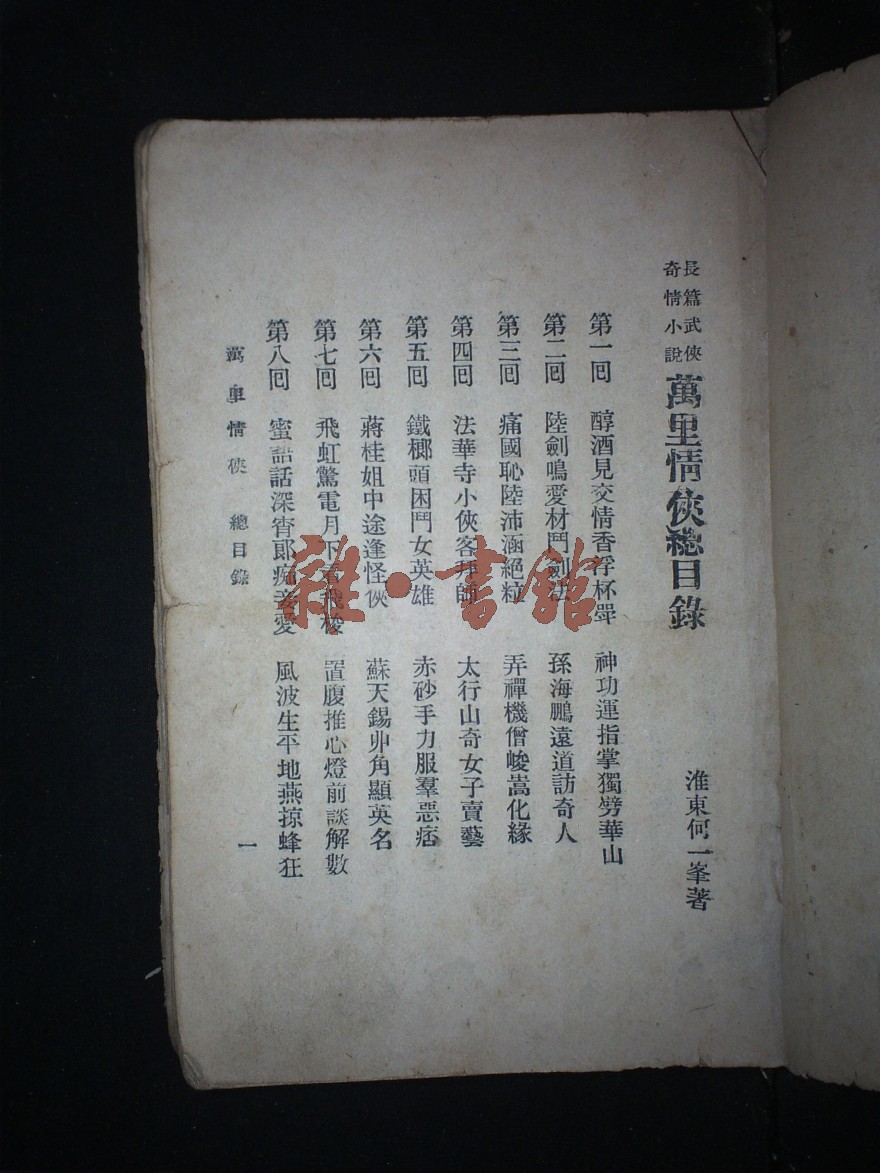 長篇武俠
奇情小說
萬里情俠總目錄
淮東何一峯著
第一回 醇酒見交情香浮杯斝 神功運指掌獨劈華山
第二回 陸劍鳴愛材鬥劍法 孫海鵬遠道訪奇人
第三回 痛國恥陸沛涵絕粒 弄禪機僧峻嵩化緣
第四回 法華寺小俠客拜師 太行山奇女子賣藝
第五回 鐵榔頭困鬥女英雄 赤砂手力服羣惡痞
第六回 蔣桂姐中途逢怪俠 蘇天錫丱角顯英名
第七回 飛虹驚電月下看飛梭 置腹推心燈前談解數
第八回 蜜語話深宵郎痴妾愛 風波生平地燕掠蜂狂
萬里情俠 總目錄
一
雜·書館